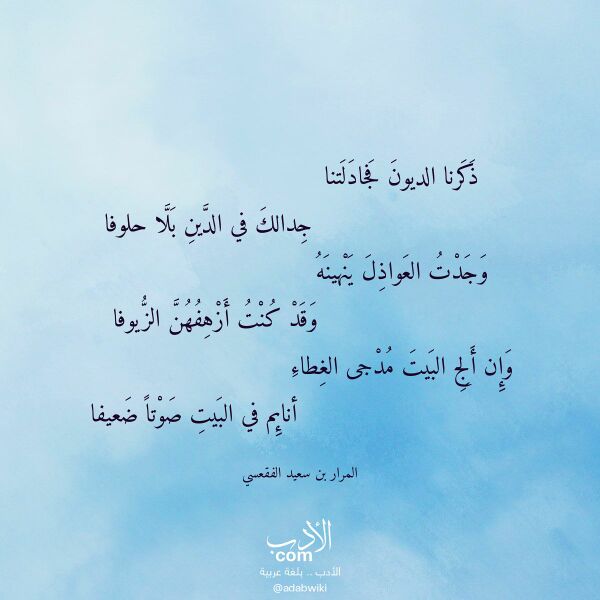 ذَكَرنا الديونَ فَجادَلَتنا
جِدالكَ في الدَّينِ بَلَّا حلوفا
وَجَدْتُ العَواذِلَ يَنْهينَهُ
وَقَدْ كُنْتُ أَزْهِفُهُنَّ الزُّيوفا
وَإِن أَلِجِ البَيتَ مُدْجى الغِطاءِ
أنائِم في البَيتِ صَوْتاً ضَعيفا
المرار بن سعيد الفقعسي
الأدب
com
الأدب .. بلغة عربية
@adabwiki